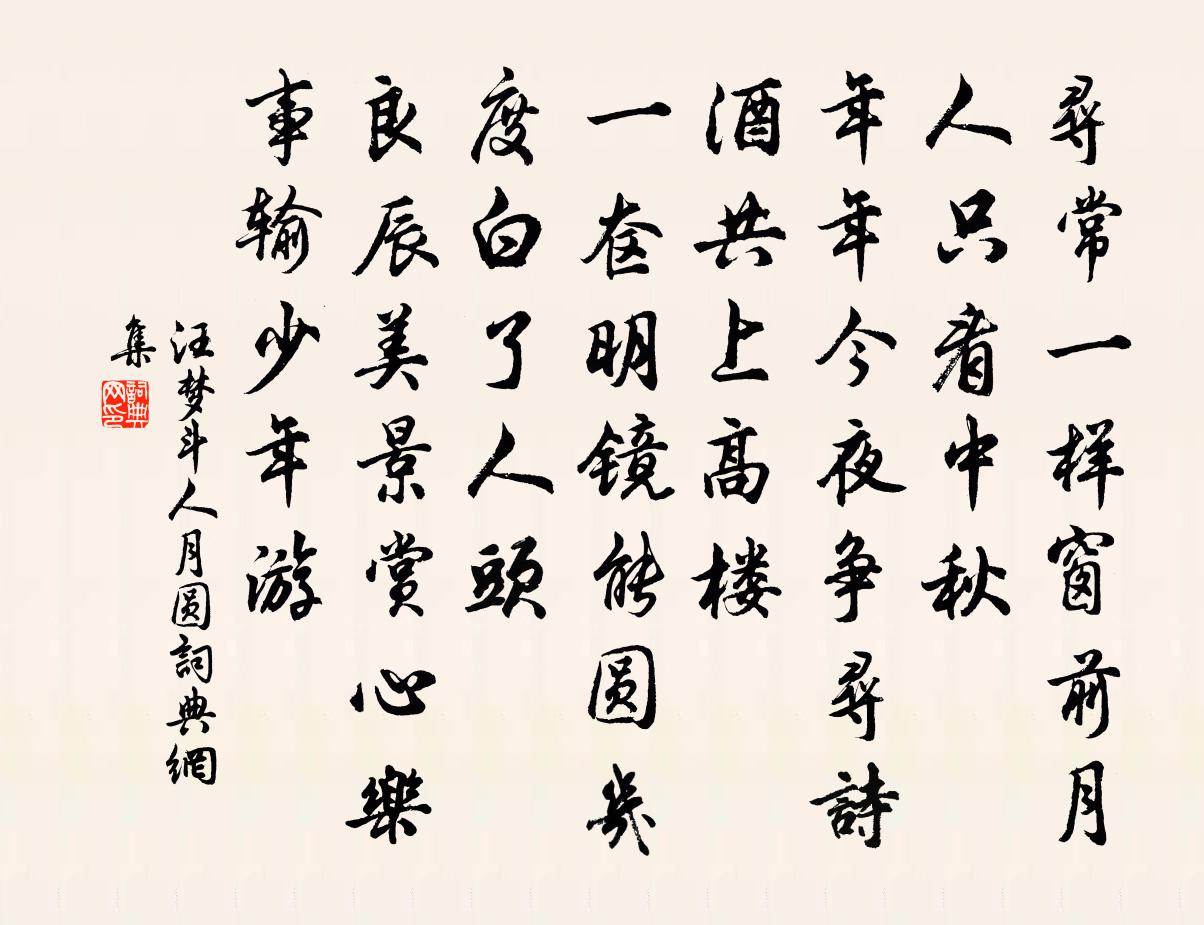 尋常一样窗前月
人只看中秋
年年今夜争尋詩
酒共上高楼
一奁明镜能圆幾
度白了人頭
良辰美景賞心樂
事输少年游
汪梦斗人月圆詞典網
集
詞典
网印